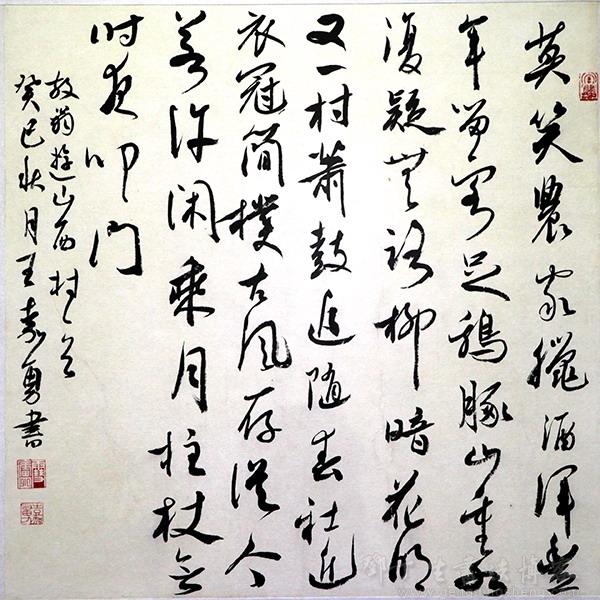 莫笑農家臘酒渾豐
年留客足鷄豚山重水
復疑無路柳暗花明
又一村蕭鼓追隨春社近
衣冠簡樸古風存從今
若許閑乘月拄杖無
时夜叩門
放翁遊山西村一首
癸巳秋月王嘉勇書